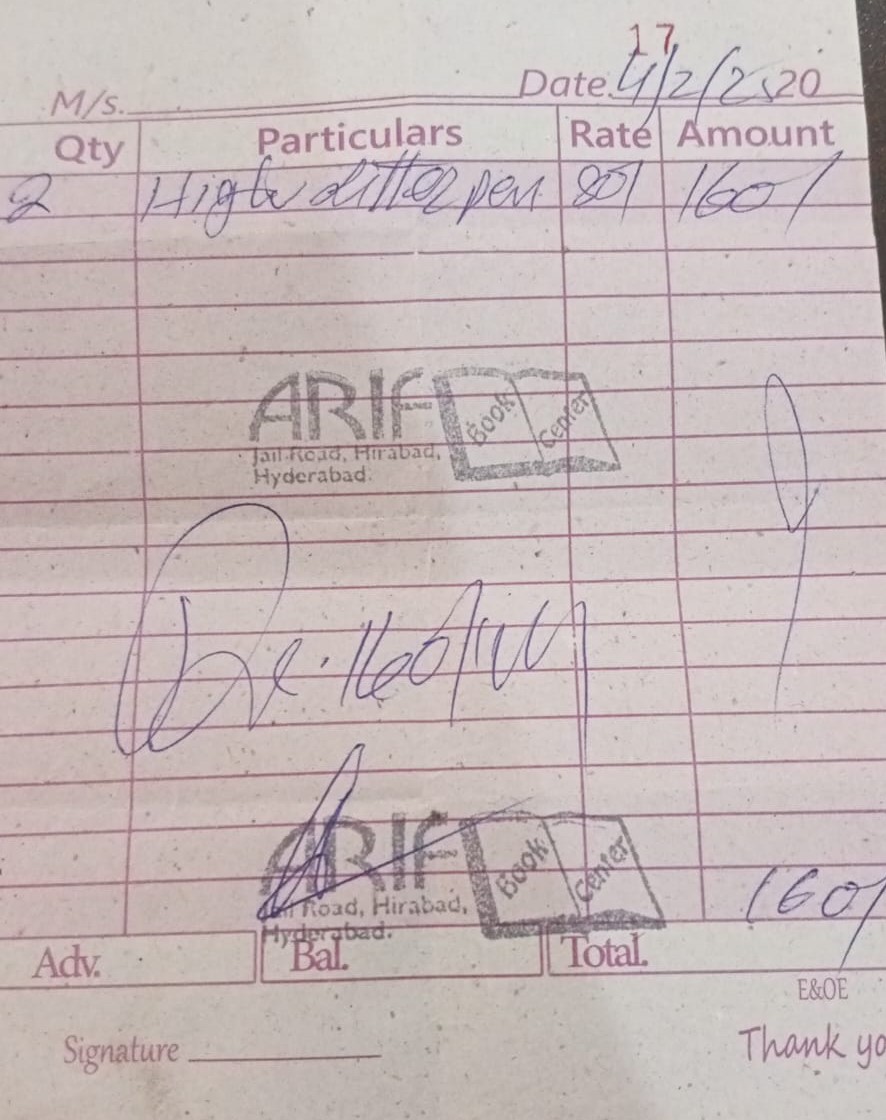 17
M/s. Date. 4/2/25 20
Qty Particulars Rate Amount
2 High pen 80/ 160/
ARIF Book Center
Jail Road, Hirabad,
Hyderabad.
160/
ARIF Book Center
Jail Road, Hirabad,
Hyderabad.
160/
Adv. Bal. Total.
E&OE
Signature Thank yo